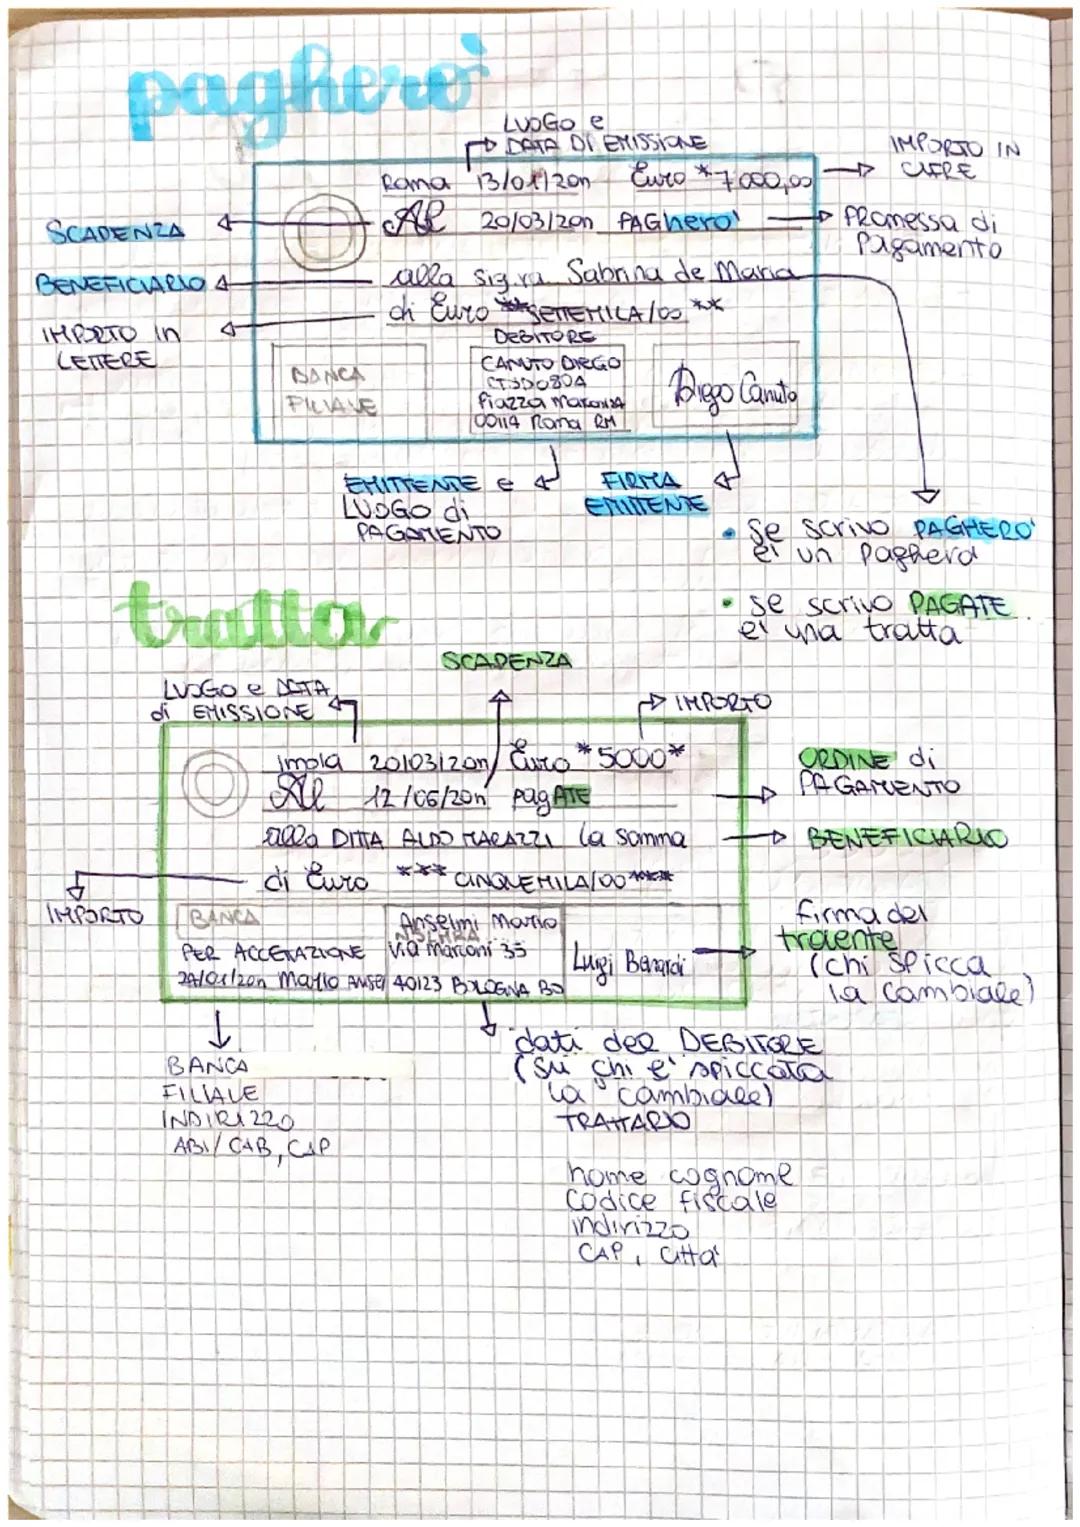 paghero'
LUOGO e
DATA DI EMISSIONE
IMPORTO IN
CIFRE
Roma 13/01/20n Euro *7000,00
SCADENZA
Al 20/03/20n PAGhero'
PROMESSA di
Pagamento
BENEFICIARIO
alla sig.ra Sabrina de Maria
IMPORTO in
LETTERE
di Euro **SETTEMILA/00 **
DEBITORE
BANCA
FILIALE
CANUTO DIEGO
Piazza
00114 Roma RM
Diego Canuto
EMITTENTE e
LUOGO di
PAGAMENTO
FIRMA
EMITTENTE
• Se scrivo PAGHERO'
e' un Paghero'
• se scrivo PAGATE
e' una tratta
tratta
SCADENZA
LUOGO e DATA
di EMISSIONE
IMPORTO
imola 20/03/20n Euro *5000*
Al 12/06/20n pagATE
ORDINE di
PAGAMENTO
alla DITTA ALDO MARAZZI la somma
BENEFICIARIO
di Euro *** CINQUEMILA/00 ****
IMPORTO
BANCA
PER ACCETAZIONE
24/01/20n Mario
Anselmi Mario
Via Marconi 35
40123 BOLOGNA BO
Luigi Berardi
firma del
traente
(chi spicca
la cambiale)
BANCA
FILIALE
INDIRIZZO
ABI/CAB, CAP
dati del DEBITORE
(su chi e' spiccata
la cambiale)
TRATTARIO
nome cognome
codice fiscale
indirizzo
CAP, citta'